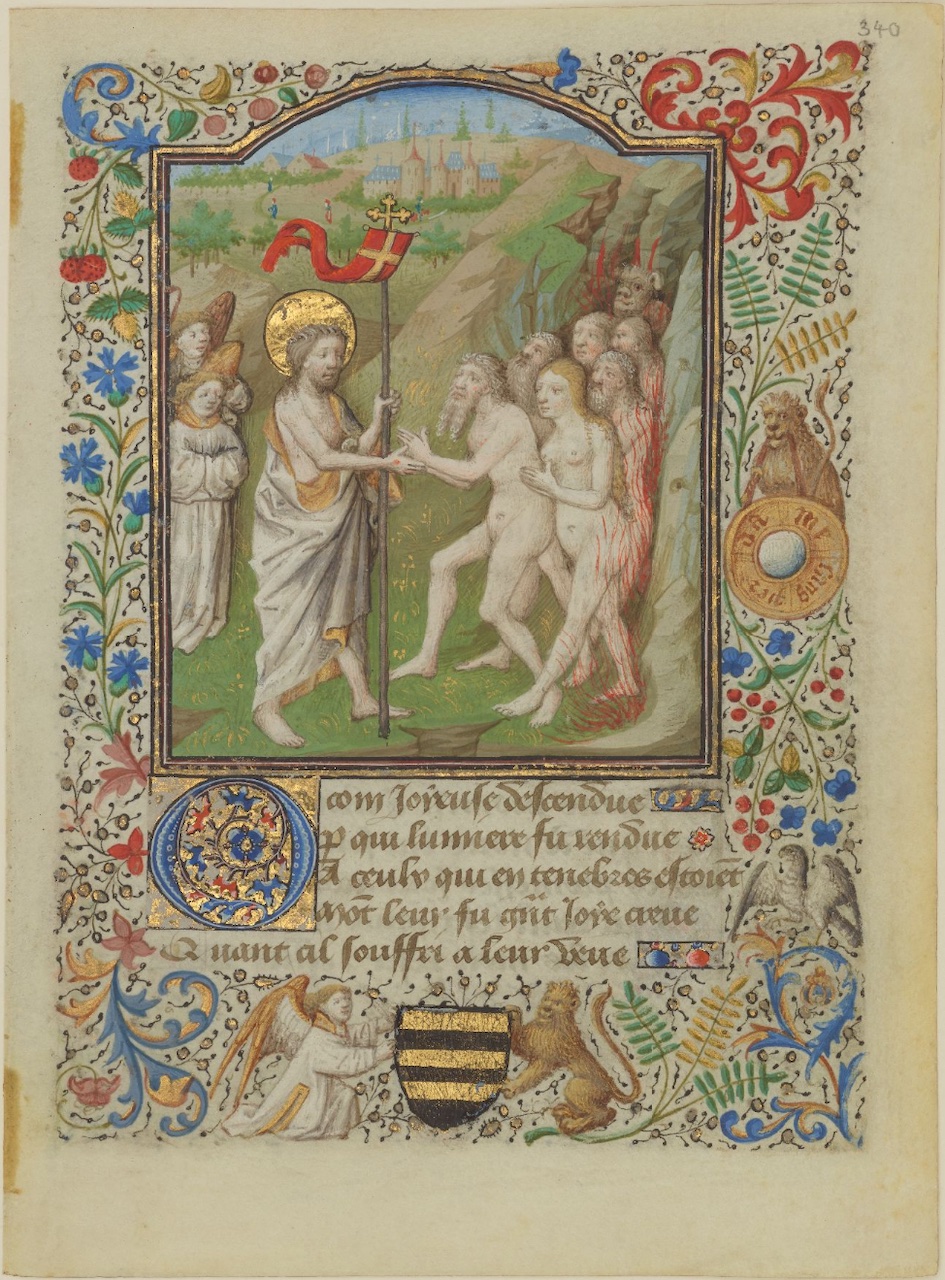 340
O com Joyeuse descendue
P qui lumiere fu rendue
A ceulx qui en tenebres estoiēt
leur fu Joye creue
Quant cil souffri a leur veue